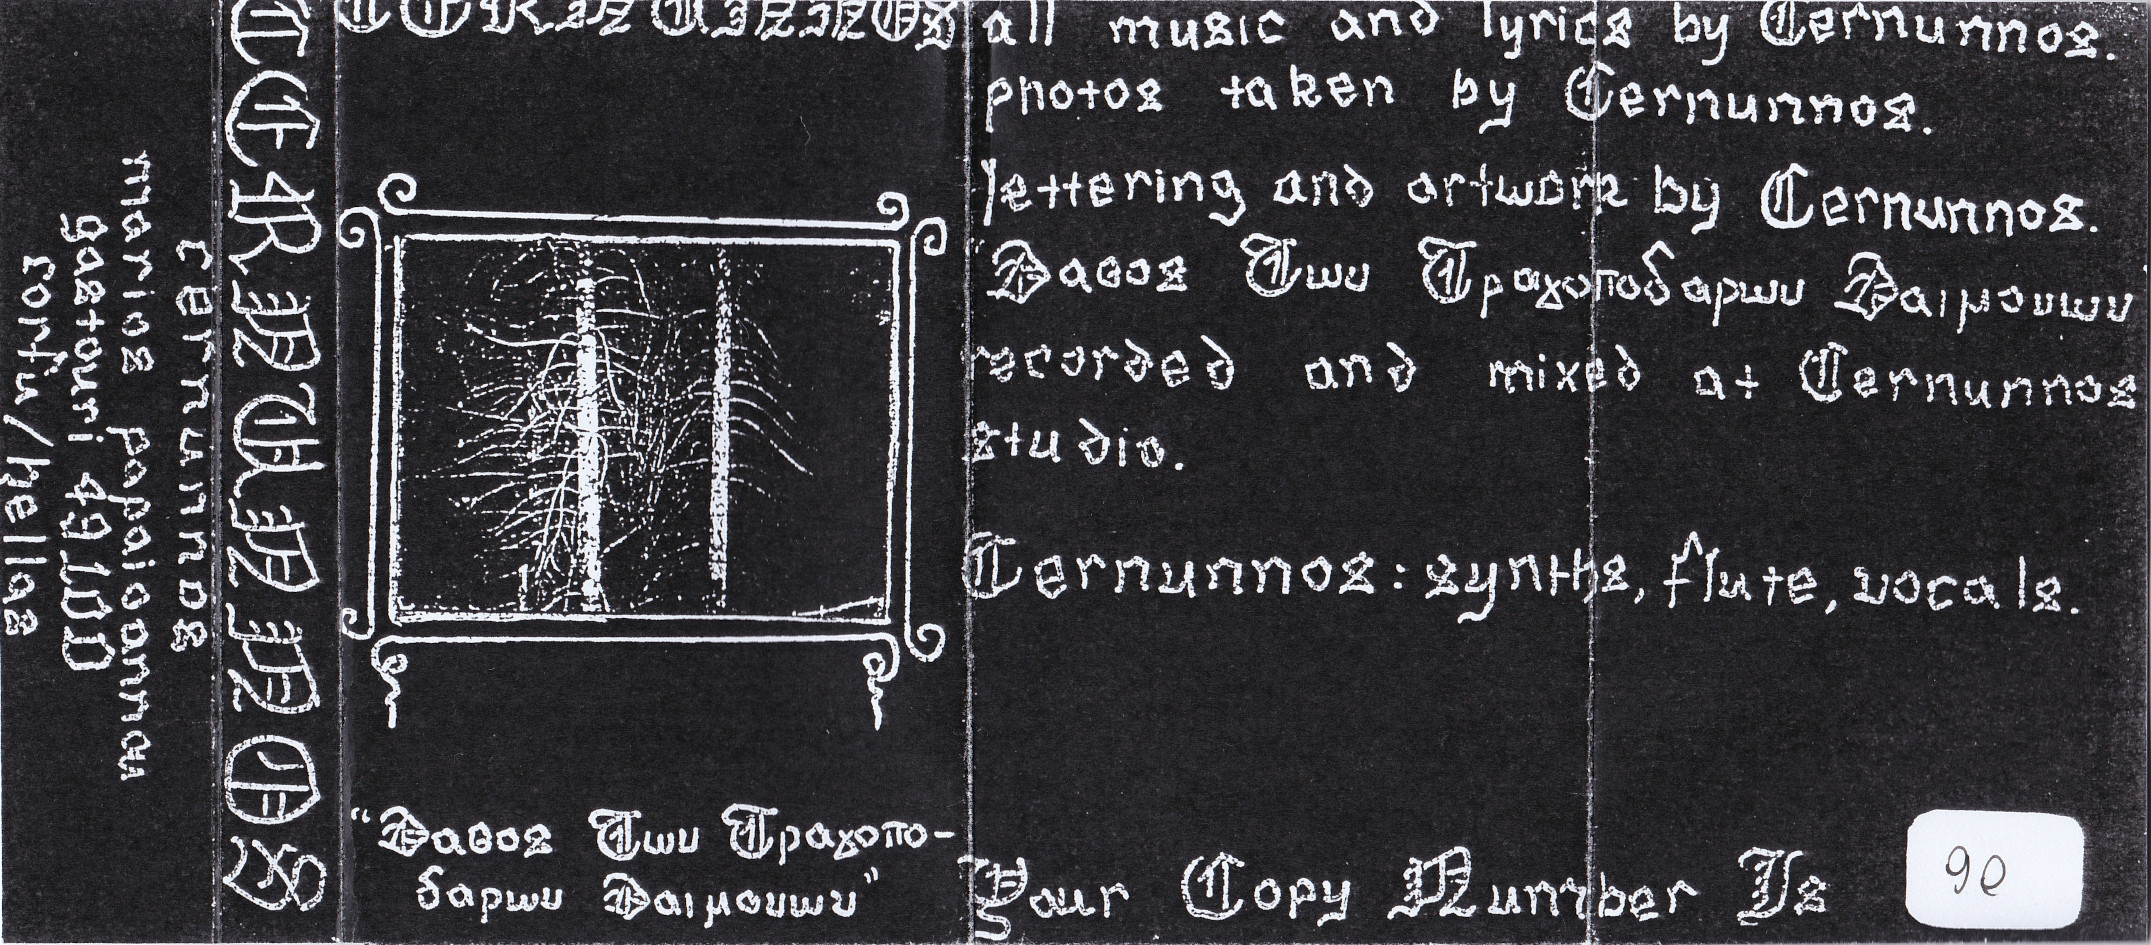 cernunnos
marios papaioannou
gastouri 49100
corfu/hellas
CERNUNNOS
CERNUNNOS
"Δασος Των Τραγοπο-
δαρων Δαιμονων"
all music and lyrics by Cernunnos.
photos taken by Cernunnos.
lettering and artwork by Cernunnos.
"Δασος Των Τραγοποδαρων Δαιμονων
recorded and mixed at Cernunnos
studio.
Cernunnos: synths, flute, vocals.
Your Copy Number Is